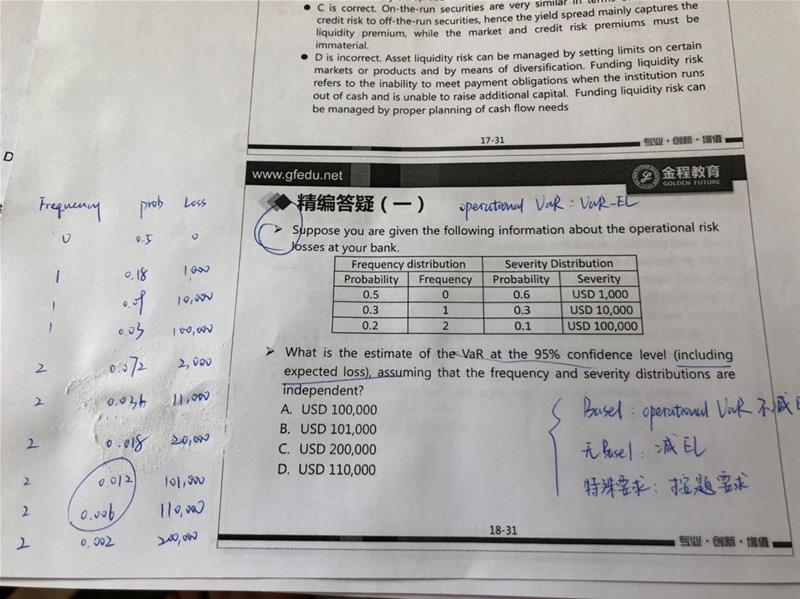 C is correct. On-the-run securities are very similar in
credit risk to off-the-run securities, hence the yield spread mainly captures the
liquidity premium, while the market and credit risk premiums must be
immaterial.
D is incorrect. Asset liquidity risk can be managed by setting limits on certain
markets or products and by means of diversification. Funding liquidity risk
refers to the inability to meet payment obligations when the institution runs
out of cash and is unable to raise additional capital. Funding liquidity risk can
be managed by proper planning of cash flow needs
17-31
专业·创新·增值
D
www.gfedu.net
金程教育
GOLDEN FUTURE
精编答疑（一）
operational VaR = VaR-EL
Suppose you are given the following information about the operational risk
losses at your bank.
Frequency distribution Severity Distribution
Probability Frequency Probability Severity
0.5 0 0.6 USD 1,000
0.3 1 0.3 USD 10,000
0.2 2 0.1 USD 100,000
What is the estimate of the VaR at the 95% confidence level (including
expected loss), assuming that the frequency and severity distributions are
independent?
A. USD 100,000
B. USD 101,000
C. USD 200,000
D. USD 110,000
Basel: operational VaR 不减
无Basel: 减EL
特殊要求: 按题要求
18-31
专业·创新·增值
Frequency prob Loss
0 0.5 0
1 0.18 1,000
1 0.09 10,000
1 0.03 100,000
2 0.072 2,000
2 11,000
2 0.018 20,000
2 0.012 101,000
2 0.006 110,000
2 0.002 200,000